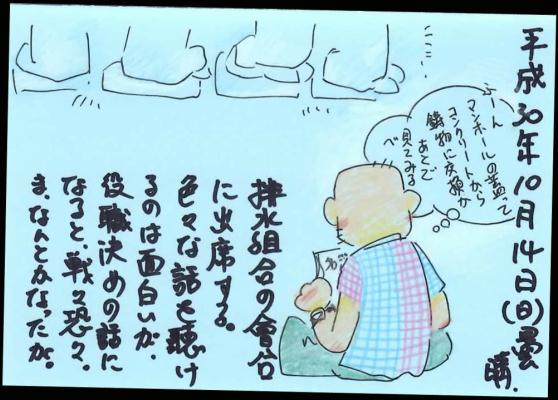 平成30年10月14日(日)曇
晴.
ふーん
マンホールの蓋って
コンクリートから
鋳物に交換か
あとで
見てみる
べ
排水組合の會合
に出席する。
色々な話を聴け
るのは面白いが、
役職決めの話に
なると、戦々恐々。
ま、なんとかなったか。